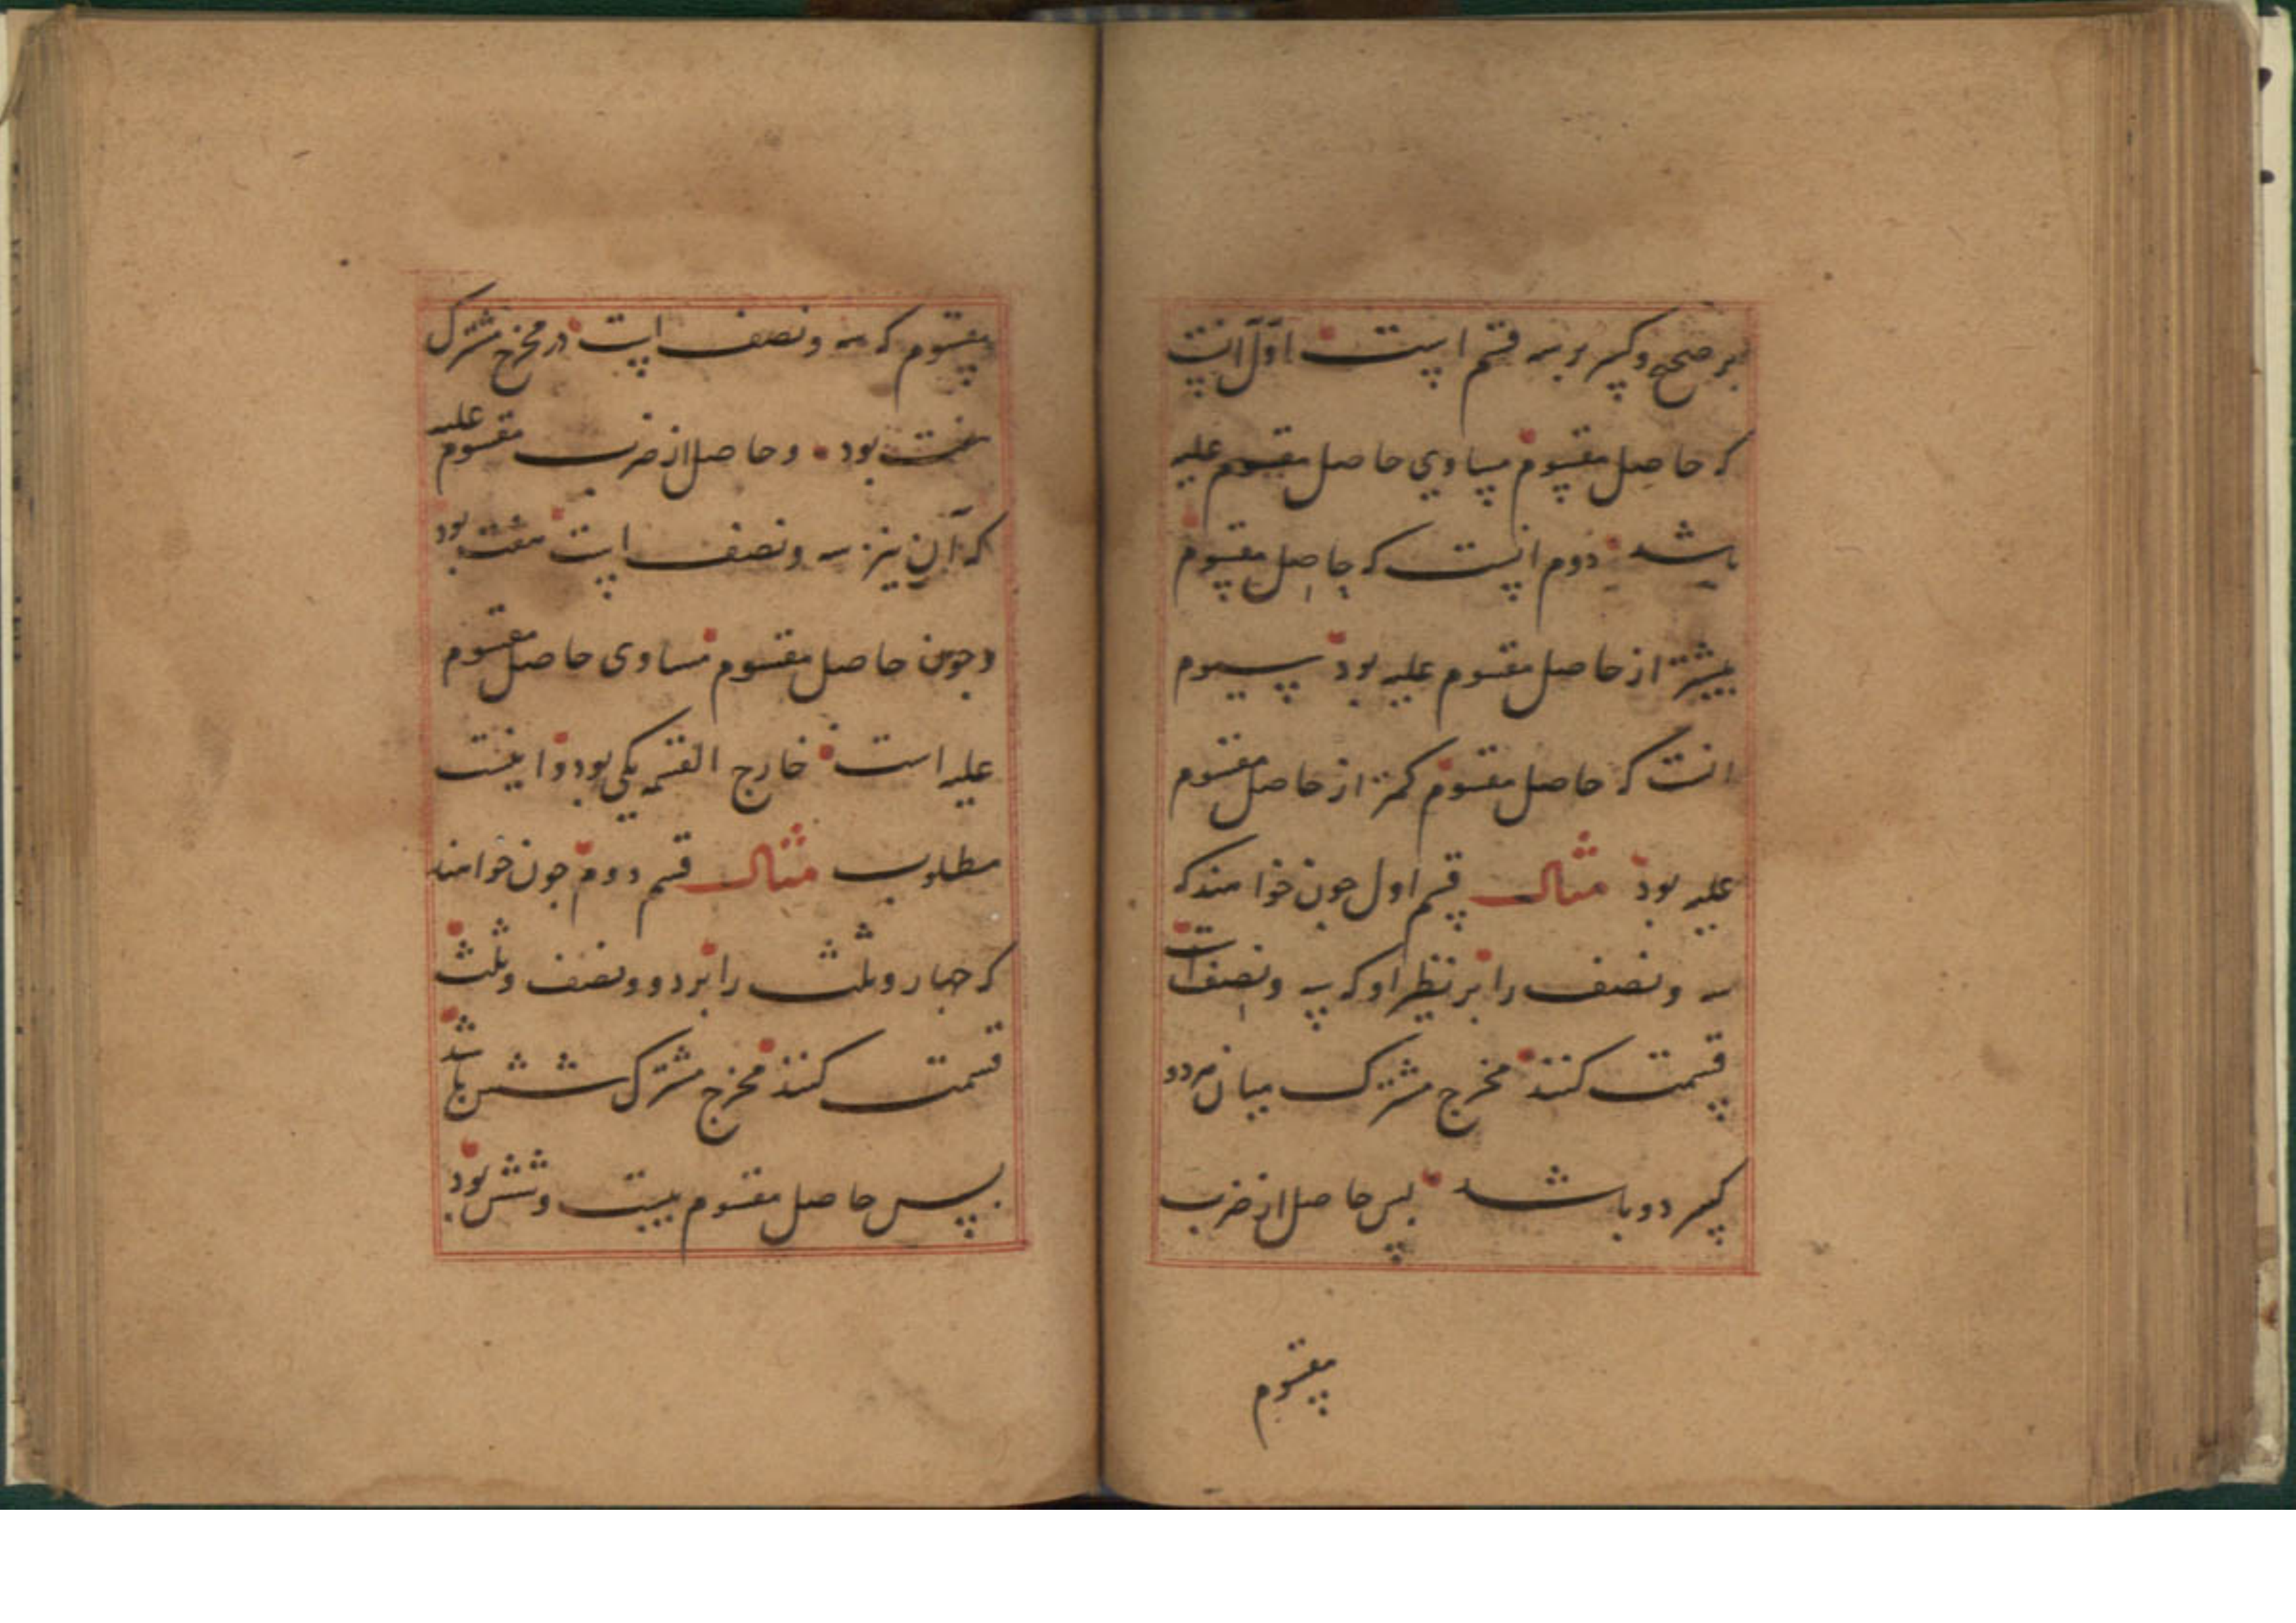 بر صحیح و کسر و بسه قسم است اوّل انست
که حاصل مقسوم مساوی حاصل مقسوم علیه
باشد دوم انست که حاصل مقسوم
بیشتر از حاصل مقسوم علیه بود سیوم
انست که حاصل مقسوم کمتر از حاصل مقسوم
علیه بود مثال قسم اول چون خواهند که
سه و نصف را بر نظیر او که سه و نصف است
قسمت کنند مخرج مشترک میان هر دو
کسر دو باشد پس حاصل از ضرب
مقسوم
مقسوم که سه و نصف است در مخرج مشترک
هفت بود و حاصل از ضرب مقسوم علیه
که آن نیز سه و نصف است هفت بود
و چون حاصل مقسوم مساوی حاصل مقسوم
علیه است خارج القسمه یکی بود و اینست
مطلوب مثال قسم دوم چون خواهند
که چهار و ثلث را بر دو و نصف و ثلث
قسمت کنند مخرج مشترک شش باشد
پس حاصل مقسوم بیست و شش بود